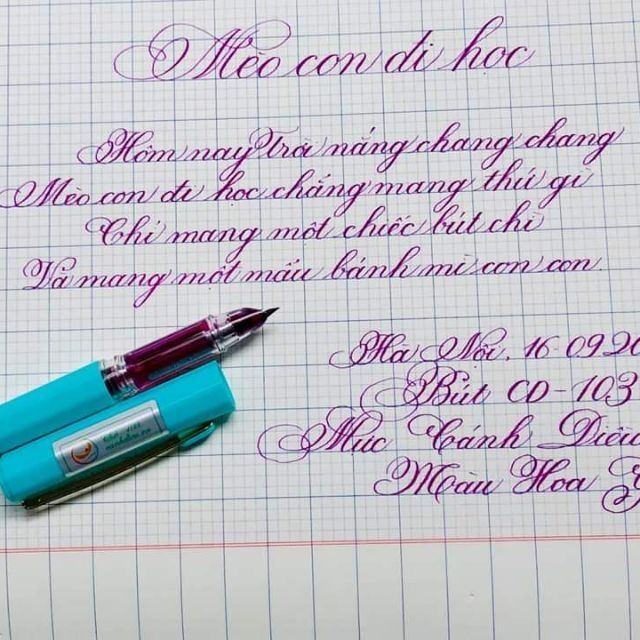 Mèo con đi học
Hôm nay trời nắng chang chang
Mèo con đi học chẳng mang thứ gì
Chỉ mang một chiếc bút chì
Và mang một mẩu bánh mì con con
Hà Nội, 16-09.20
Bút CD-103
Mực Cánh Diều
Màu Hoa